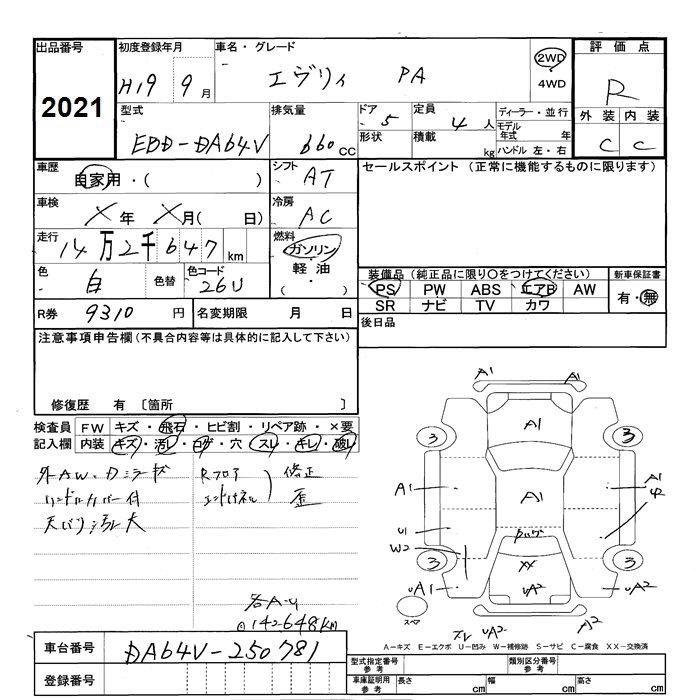 出品番号 初度登録年月 車名・グレード 評価点
2021 H19 9月 エブリィ PA 2WD 4WD R
型式 排気量 ドア 定員 ディーラー・並行 外装 内装
EBD-DA64V 660cc 5 4人 モデル年式 年 C C
形状 積載 kg ハンドル 左・右
車歴 自家用・( ) シフト AT セールスポイント (正常に機能するものに限ります)
車検 X年 X月( 日) 冷房 AC
走行 14万2千647km 燃料 ガソリン 軽油 ( ・ )
色 白 色替 色コード 26U 装備品 (純正品に限り〇をつけてください) 新車保証書
PS PW ABS エアB AW 有・無
R券 9310円 名変期限 月 日 SR ナビ TV カワ
注意事項申告欄 (不具合内容等は具体的に記入して下さい) 後日品
修復歴 有 〔箇所 〕
検査員 FW キズ・飛石・ヒビ割・リペア跡・×要
記入欄 内装 キズ・汚レ・コゲ・穴・スレ・キレ・破レ
外AW、Dミラーキズ Rフロア 修正
ハンドルカバー付 エンドパネル 歪
天バリ汚レ大
各A-U
142648KM
A1 A1
A1
3 3
A1 A1 A1
U1
W2 バックP
3 XX 3
UA1 UA2 UA2
スペア
UA2
A-キズ E-エクボ U-凹み W-補修跡 S-サビ C-腐食 XX-交換済
車台番号 DA64V-250781
登録番号
型式指定番号 参考 類別区分番号 参考
車庫証明用 参考 長さ cm 幅 cm 高さ cm